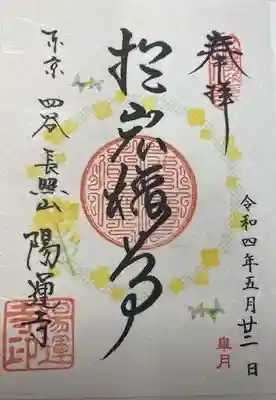 奉拝
令和四年五月廿二日
皐月
於岩稲荷
東京 四谷 長照山 陽運寺
陽運
寺印